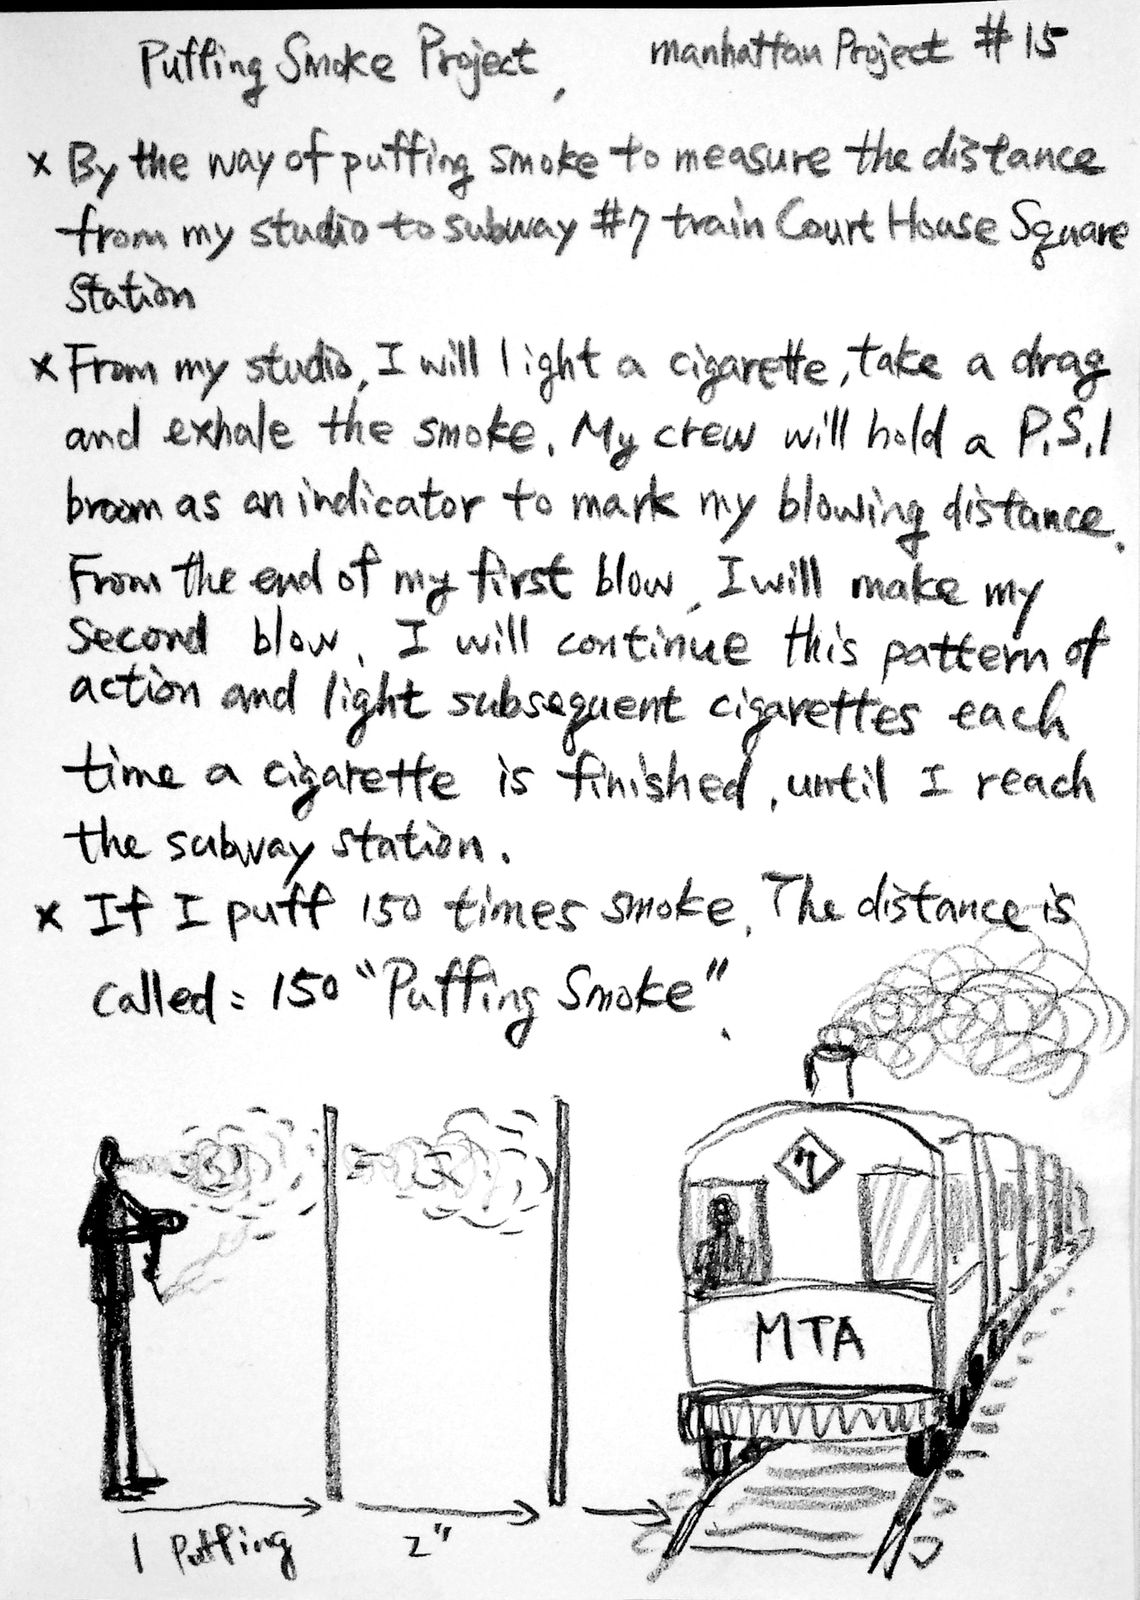 Puffing Smoke Project, manhattan Project #15
x By the way of puffing smoke to measure the distance
from my studio to subway #7 train Court House Square
Station
x From my studio, I will light a cigarette, take a drag
and exhale the smoke. My crew will hold a P.S.1
broom as an indicator to mark my blowing distance.
From the end of my first blow, I will make my
second blow. I will continue this pattern of
action and light subsequent cigarettes each
time a cigarette is finished, until I reach
the subway station.
x If I puff 150 times smoke. The distance is
called: 150 "Puffing Smoke".
7
MTA
1 Puffing 2"